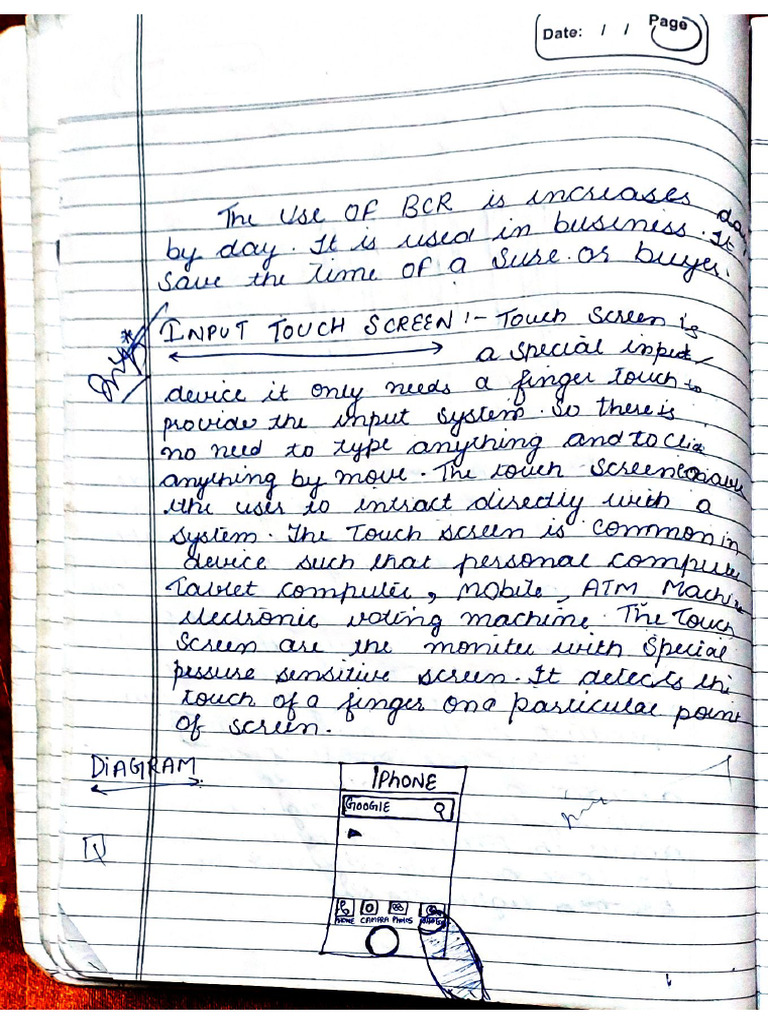 Page
Date: / /
The use OF BCR is increases day
by day. It is used in business. It
save the time of a suse or buyer.
INPUT TOUCH SCREEN :- Touch Screen is
a special input
device it only needs a finger touch to
provide the input system. So there is
no need to type anything and to click
anything by move. The touch screen
the user to intract directly with a
system. The Touch screen is common in
device such that personal compute
Tablet computer, Mobile, ATM Machine
electronic voting machine. The Touch
Screen are the moniter with special
pessure sensitive screen. It detects the
touch of a finger on a particular point
of screen.
DIAGRAM
IPHONE
GOOGIE
PHONE CAMERA PHOTOS